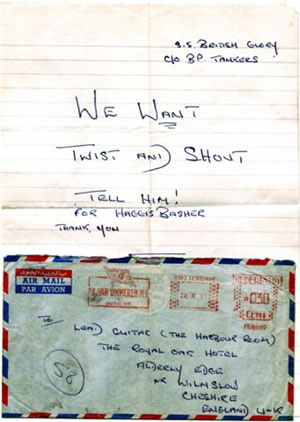 S.S. BRITISH GLORY
C/O BP. TANKERS
WE WANT
TWIST AND SHOUT
TELL HIM!
FOR HAGGIS BASHER
THANK YOU
AIR MAIL
PAR AVION
ROTTERDAM
NEDERLAND
030
CENT
LEAD GUITAR (THE HARBOUR ROOM)
THE ROYAL OAK HOTEL
ALDERLY EDGE
NR WILMSLOW
CHESHIRE
ENGLAND U-K
52